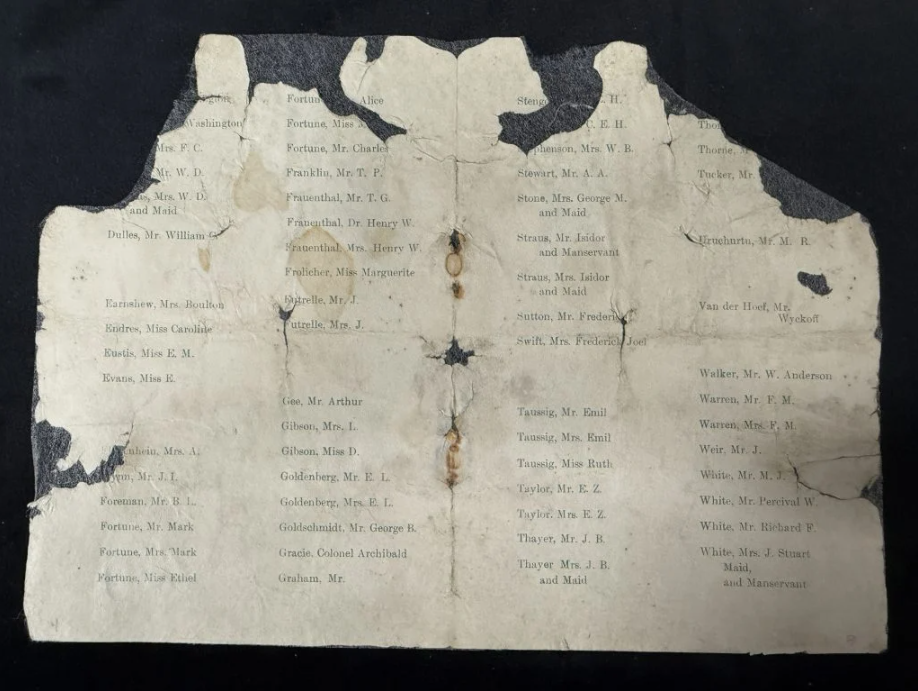 Washington
Mrs. F. C.
Mr. W. D.
Mrs. W. D.
and Maid
Dulles, Mr. William
Earnshew, Mrs. Boulton
Endres, Miss Caroline
Eustis, Miss E. M.
Evans, Miss E.
Mrs. A.
Mr. J. I.
Foreman, Mr. B. L.
Fortune, Mr. Mark
Fortune, Mrs. Mark
Fortune, Miss Ethel
Alice
Fortune, Miss
Fortune, Mr. Charles
Franklin, Mr. T. P.
Frauenthal, Mr. T. G.
Frauenthal, Dr. Henry W.
Frauenthal, Mrs. Henry W.
Frolicher, Miss Marguerite
Futrelle, Mr. J.
Futrelle, Mrs. J.
Gee, Mr. Arthur
Gibson, Mrs. L.
Gibson, Miss D.
Goldenberg, Mr. E. L.
Goldenberg, Mrs. E. L.
Goldschmidt, Mr. George B.
Gracie, Colonel Archibald
Graham, Mr.
H.
C. E. H.
Mrs. W. B.
Stewart, Mr. A. A.
Stone, Mrs. George M.
and Maid
Straus, Mr. Isidor
and Manservant
Straus, Mrs. Isidor
and Maid
Sutton, Mr. Frederick
Swift, Mrs. Frederick Joel
Taussig, Mr. Emil
Taussig, Mrs. Emil
Taussig, Miss Ruth
Taylor, Mr. E. Z.
Taylor, Mrs. E. Z.
Thayer, Mr. J. B.
Thayer Mrs. J. B.
and Maid
Thorne,
Tucker, Mr.
Uruchurtu, Mr. M. R.
Van der Hoef, Mr.
Wyckoff
Walker, Mr. W. Anderson
Warren, Mr. F. M.
Warren, Mrs. F. M.
Weir, Mr. J.
White, Mr. M. J.
White, Mr. Percival W.
White, Mr. Richard F.
White, Mrs. J. Stuart
Maid,
and Manservant